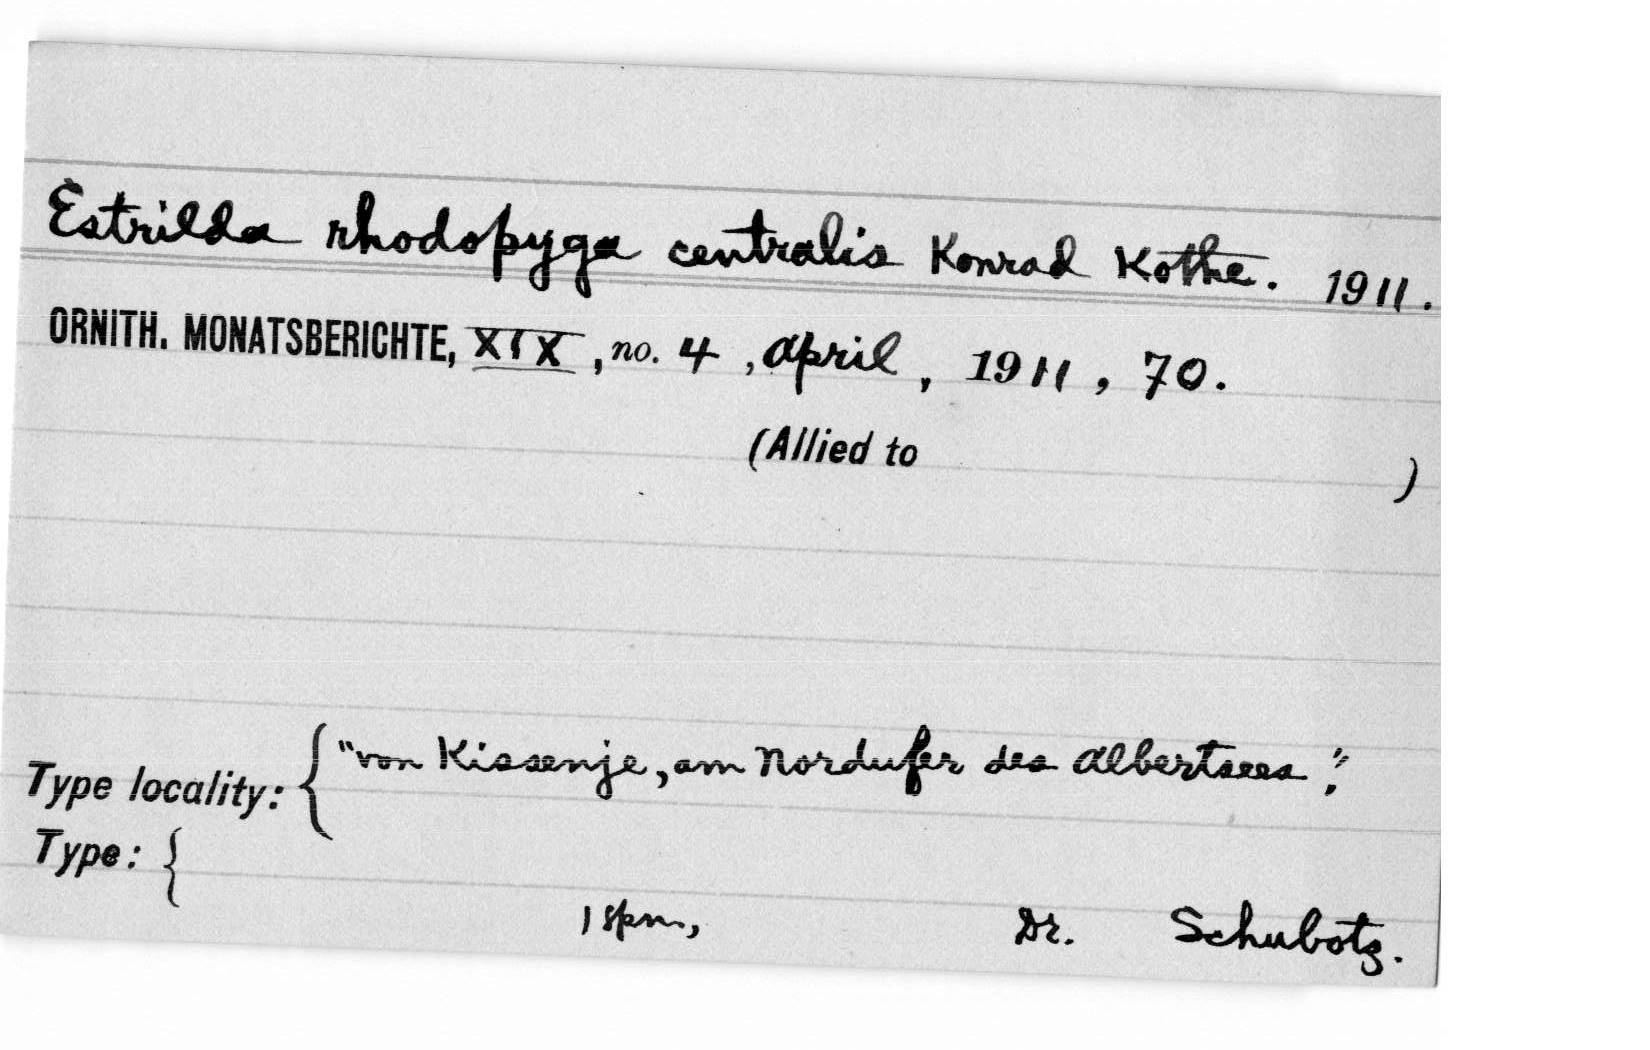 Estrilda rhodopyga centralis Konrad Kothe. 1911.
ORNITH. MONATSBERICHTE, XIX, no. 4, April, 1911, 70.
(Allied to )
Type locality: { "von Kissenje, am Nordufer des Albertsees";
Type: {
1 spm, Dr. Schubotz.